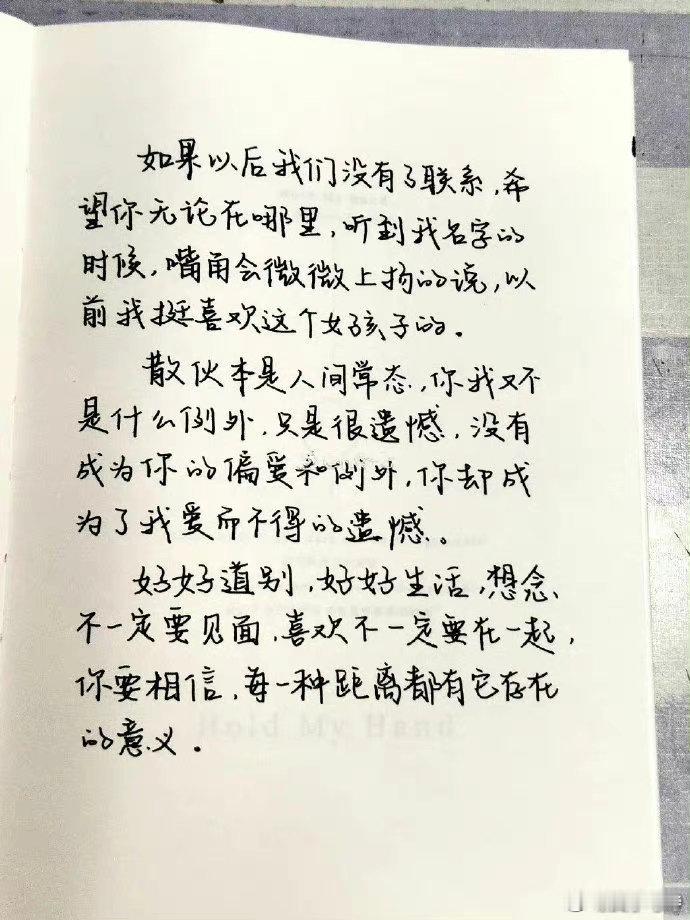 如果以后我们没有了联系,希
望你无论在哪里,听到我名字的
时候,嘴角会微微上扬的说,以
前我挺喜欢这个女孩子的.
散伙本是人间常态,你我又不
是什么例外,只是很遗憾,没有
成为你的偏爱和例外,你却成
为了我爱而不得的遗憾.
好好道别,好好生活,想念
不一定要见面,喜欢不一定要在一起,
你要相信,每一种距离都有它存在
的意义.
Hold My Hand